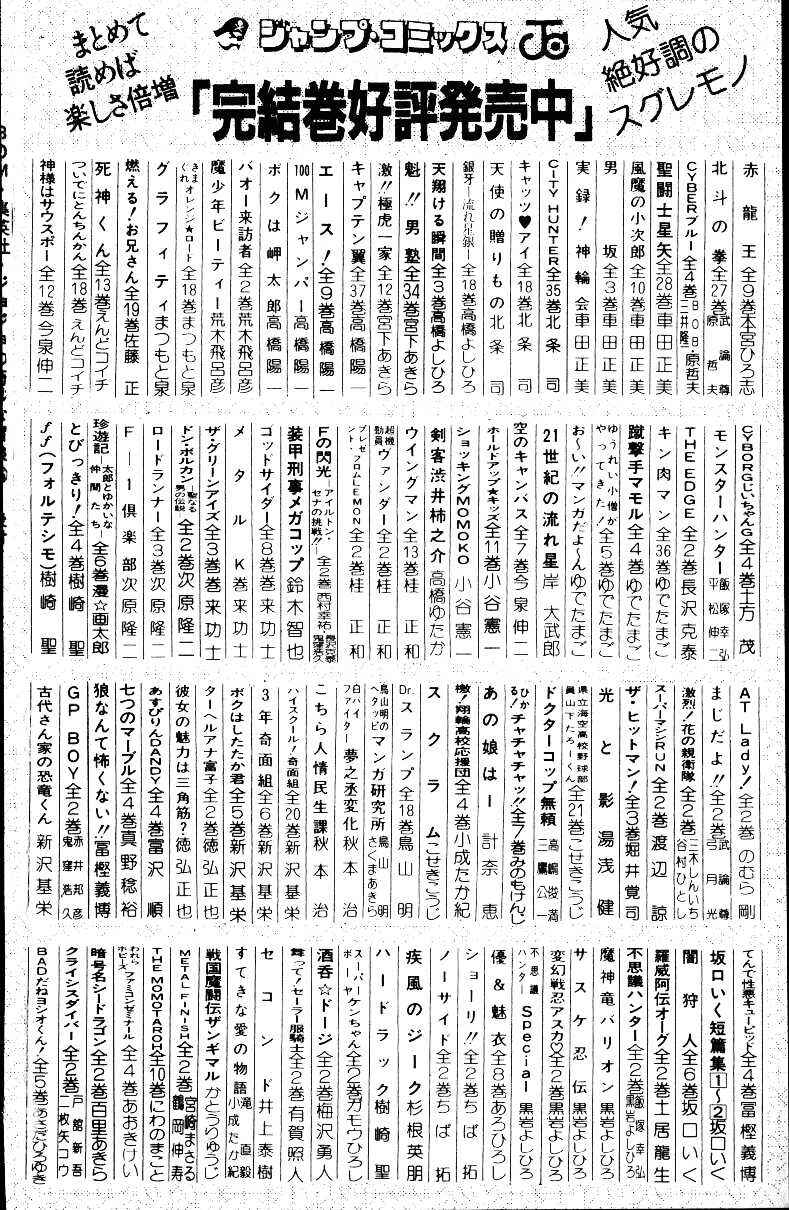 まとめて
読めば
楽しさ倍増
ジャンプ・コミックス
人気
絶好調の
スグレモノ
「完結巻好評発売中」
赤龍王 全9巻 本宮ひろ志
北斗の拳 全27巻 武論尊 原哲夫
CYBERブルー 全4巻 BOB 三井隆一 原哲夫
聖闘士星矢 全28巻 車田正美
風魔の小次郎 全10巻 車田正美
男坂 全3巻 車田正美
実録!神輪会 車田正美
CITY HUNTER 全35巻 北条司
キャッツ♥アイ 全18巻 北条司
天使の贈りもの 北条司
銀牙ー流れ星銀ー 全18巻 高橋よしひろ
天翔ける瞬間 全3巻 高橋よしひろ
魁!!男塾 全34巻 宮下あきら
激!!極虎一家 全12巻 宮下あきら
キャプテン翼 全37巻 高橋陽一
エース! 全9巻 高橋陽一
100Mジャンパー 高橋陽一
ボクは岬太郎 高橋陽一
バオー来訪者 全2巻 荒木飛呂彦
魔少年ビーティー 荒木飛呂彦
きまぐれオレンジ★ロード 全18巻 まつもと泉
グラフィティ まつもと泉
燃える!お兄さん 全19巻 佐藤正
死神くん 全13巻 えんどコイチ
ついでにとんちんかん 全18巻 えんどコイチ
神様はサウスポー 全12巻 今泉伸二
CYBORGじいちゃんG 全4巻 土方茂
モンスターハンター 飯塚幸弘 平松伸二
THE EDGE 全2巻 長沢克泰
キン肉マン 全36巻 ゆでたまご
蹴撃手マモル 全4巻 ゆでたまご
ゆうれい小僧がやってきた! 全5巻 ゆでたまご
お〜い!!マンガだよ〜ん ゆでたまご
21世紀の流れ星 岸大武郎
空のキャンバス 全7巻 今泉伸二
ホールドアップ★キッズ 全11巻 小谷憲一
ショッキングMOMOKO 小谷憲一
剣客渋井柿之介 高橋ゆたか
ウイングマン 全13巻 桂正和
超機動員ヴァンダー 全2巻 桂正和
プレゼント・フロムLEMON 全2巻 桂正和
Fの閃光 アイルトン・セナの挑戦!! 全2巻 西村幸祐 鬼窪浩久
装甲刑事メガコップ 鈴木智也
ゴッドサイダー 全8巻 巻来功士
メタルK 巻来功士
ザ・グリーンアイズ 全3巻 巻来功士
ドン・ボルカン 聖なる男の伝説 全2巻 次原隆二
ロードランナー 全3巻 次原隆二
F-1倶楽部 次原隆二
珍遊記 太郎とゆかいな仲間たち 全6巻 漫☆画太郎
とびっきり! 全4巻 樹崎聖
ff(フォルテシモ) 樹崎聖
AT Lady! 全2巻 のむら剛
まじだよ!! 全2巻 武論尊 弓月光
激烈!花の親衛隊 全2巻 三木しんいち 谷村ひとし
スーパーマシンRUN 全2巻 渡辺諒
ザ・ヒットマン! 全3巻 堀井覚司
光と影 湯浅健
県立海空高校野球部員山下たろーくん 全21巻 こせきこうじ
ドクターコップ無頼 高嶋俊満 三鷹公一
ひかる!チャチャチャッ!! 全7巻 みのもけんじ
あの娘はー 計奈恵
檄!翔輪高校応援団 全4巻 小成たか紀
スクラム こせきこうじ
Dr.スランプ 全18巻 鳥山明
鳥山明のヘタッピマンガ研究所 鳥山明 さくまあきら
白バイファイター 夢之丞変化 秋本治
こちら人情民生課 秋本治
ハイスクール!奇面組 全20巻 新沢基栄
3年奇面組 全6巻 新沢基栄
ボクはしたたか君 全5巻 新沢基栄
ターヘルアナ富子 全2巻 徳弘正也
彼女の魅力は三角筋? 徳弘正也
あすびりんDANDY 全4巻 富沢順
七つのマーブル 全4巻 真野稔裕
狼なんて怖くない!! 冨樫義博
GP BOY 全2巻 赤井邦彦 鬼窪浩久
古代さん家の恐竜くん 新沢基栄
てんで性悪キューピッド 全4巻 冨樫義博
坂口いく短篇集1〜2 坂口いく
闇狩人 全6巻 坂口いく
羅威阿伝オーグ 全2巻 土居龍生
不思議ハンター 全2巻 飯塚幸弘 黒岩よしひろ
魔神竜バリオン 黒岩よしひろ
サスケ忍伝 黒岩よしひろ
変幻戦忍アスカ♡ 全2巻 黒岩よしひろ
不思議ハンターSpecial 黒岩よしひろ
優&魅衣 全8巻 あろひろし
ショーリ!! 全2巻 ちば拓
ノーサイド 全2巻 ちば拓
疾風のジーク 杉根英朋
ハードラック 樹崎聖
スーパーボーヤ けんちゃん 全2巻 ガモウひろし
酒呑☆ドージ 梅沢勇人
舞って!セーラー服騎士 全2巻 有賀照人
セコンド 井上泰樹
すてきな愛の物語 滝直毅 小成たか紀
戦国魔闘伝ザンギマル かとうりゅうじ
METAL FINISH 全2巻 宮崎まさる 鶴岡伸寿
THE MOMOTAROH 全10巻 にわのまこと
われらホビーズ ファミコンゼミナール 全4巻 あおきけい
暗号名シードラゴン 全2巻 百里あきら
クライシスダイバー 全2巻 戸館新吾 二枚矢コウ
BADだねヨシオくん! 全5巻 あさぎひろゆき